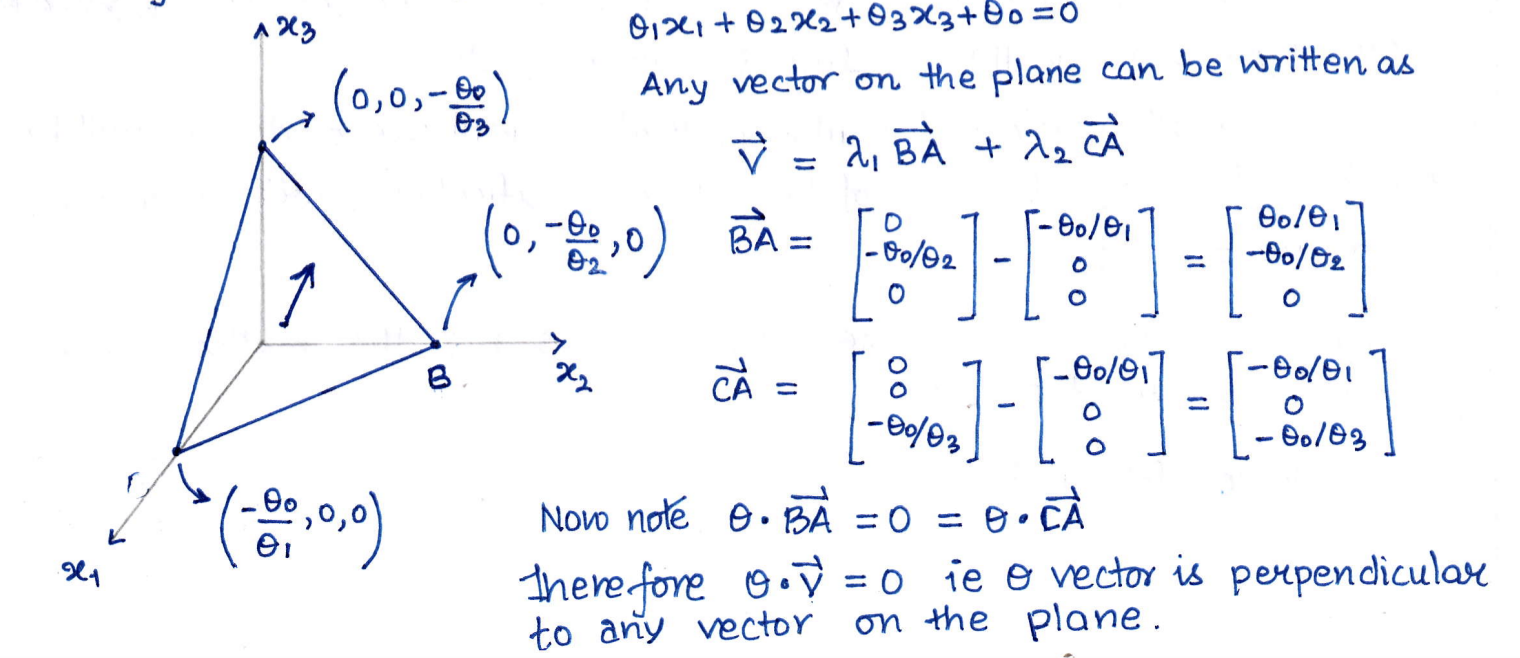 x₃
(0,0,-θ₀/θ₃)
(0,-θ₀/θ₂,0)
B
x₂
(-θ₀/θ₁,0,0)
x₁
θ₁x₁ + θ₂x₂ + θ₃x₃ + θ₀ = 0
Any vector on the plane can be written as
V⃗ = λ₁ BA⃗ + λ₂ CA⃗
BA⃗ = [0 -θ₀/θ₂ 0] - [-θ₀/θ₁ 0 0] = [θ₀/θ₁ -θ₀/θ₂ 0]
CA⃗ = [0 0 -θ₀/θ₃] - [-θ₀/θ₁ 0 0] = [-θ₀/θ₁ 0 -θ₀/θ₃]
Now note θ · BA⃗ = 0 = θ · CA⃗
Therefore θ · V⃗ = 0 ie θ vector is perpendicular
to any vector on the plane.